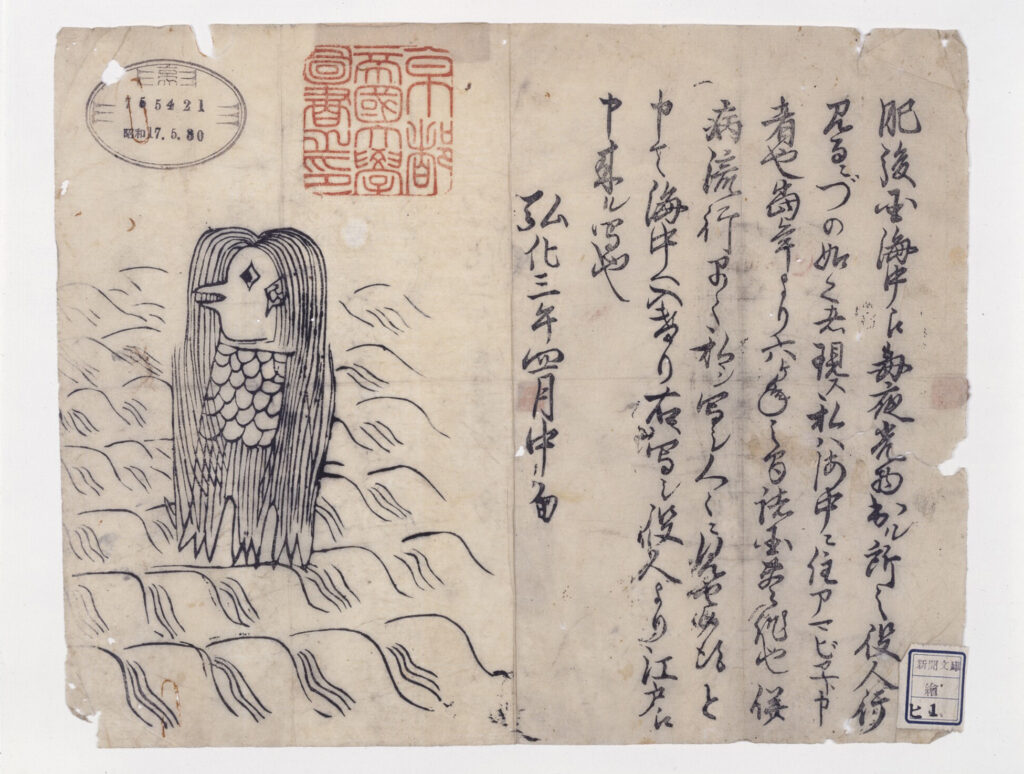 肥後国海中え毎夜光物出ル所之役人行
見るニづの如く之者現ス私ハ海中ニ住アマビヱト申
者也當年より六ヶ年之間諸国豊作也併
病流行早々私シ写シ人々ニ見セ候得と
申て海中へ入けり右写シ役人より江戸え
申来ル写也
弘化三年四月中旬
京都
帝國大學
圖書之印
昭和17.5.30
新聞文庫
繪
ヒ 1